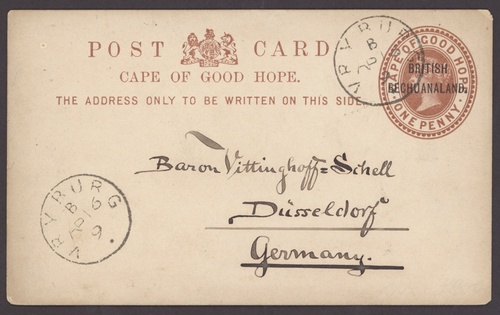 POST CARD
CAPE OF GOOD HOPE.
THE ADDRESS ONLY TO BE WRITTEN ON THIS SIDE.
CAPE OF GOOD HOPE
BRITISH
BECHUANALAND.
ONE PENNY.
VRYBURG
B
Baron Vittinghoff=Schell
Düsseldorf
Germany.
VRYBURG
B